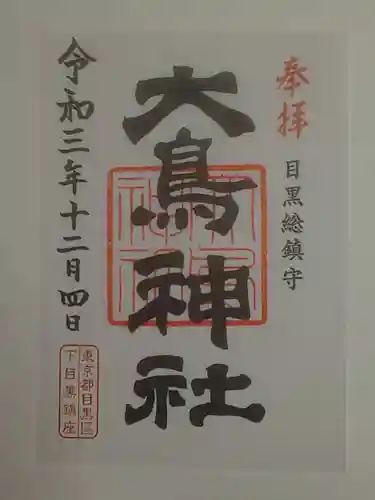 奉拝
目黒総鎮守
大鳥神社
大鳥神社
令和三年十二月四日
東京都目黒區
下目黒鎮座